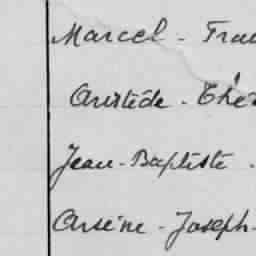 Marcel - Fran
Aristide - Thér
Jean-Baptiste -
Arsène - Joseph-